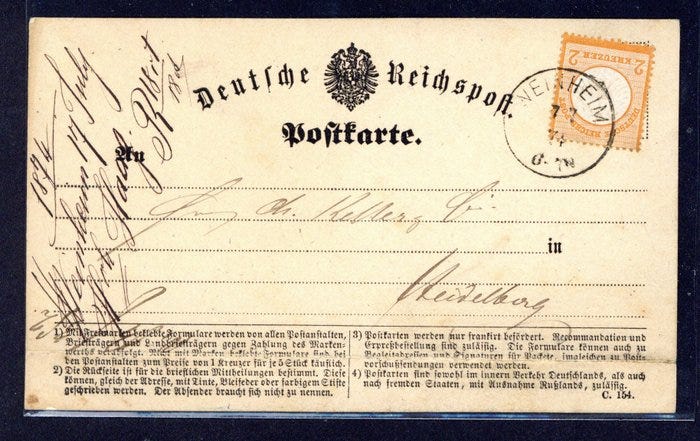 Deutsche Reichspost.
Postkarte.
An
in
Heidelberg
1874
17 July
2 KREUZER 2
DEUTSCHE REICHS
HEIM
1) Mit Freimarken beklebte Formulare werden von allen Postanstalten,
Briefträgern und Landbriefträgern gegen Zahlung des Marken-
werths verabfolgt. Nicht mit Marken beklebte Formulare sind bei
den Postanstalten zum Preise von 1 Kreuzer für je 5 Stück käuflich.
2) Die Rückseite ist für die brieflichen Mittheilungen bestimmt. Diese
können, gleich der Adresse, mit Tinte, Bleifeder oder farbigem Stifte
geschrieben werden. Der Absender braucht sich nicht zu nennen.
3) Postkarten werden nur frankirt befördert. Recommandation und
Expreßbestellung ist zulässig. Die Formulare können auch zu
Begleitadressen und Signaturen für Packete, imgleichen zu Post-
vorschußsendungen verwendet werden.
4) Postkarten sind sowohl im innern Verkehr Deutschlands, als auch
nach fremden Staaten, mit Ausnahme Rußlands, zulässig.
C. 154.